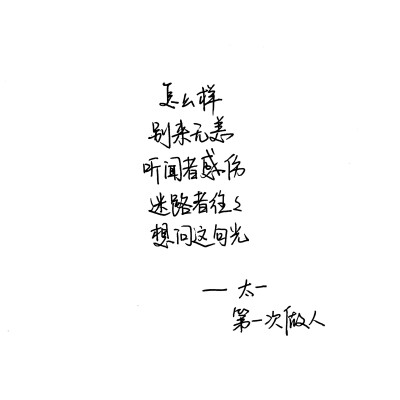 怎么样
别来无恙
听闻者感伤
迷路者往々
想问这句光
—— 太一
第一次做人